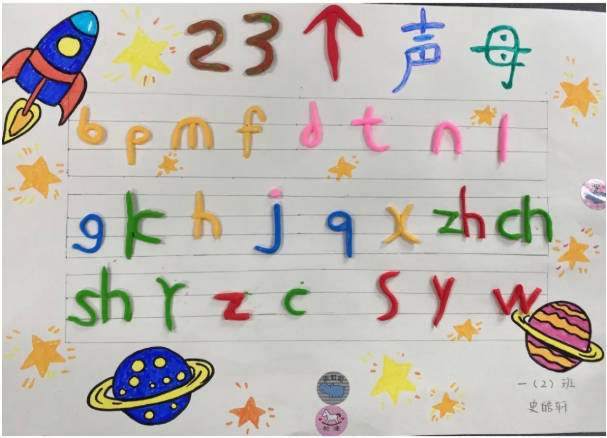 23个声母
b p m f d t n l
g k h j q x zh ch
sh r z c s y w
一(2)班
史皓轩